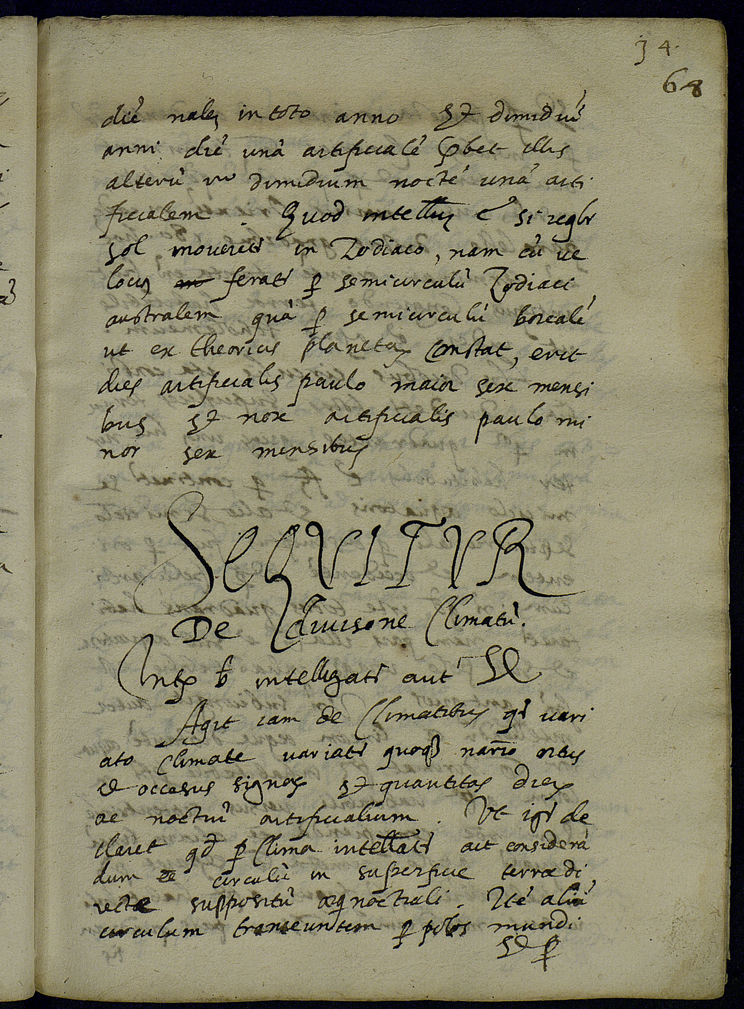 34.
68
diē nalē in toto anno et dimidiū
anni diē unā artificialē hꝫbet illis
alterū vō dimidium noctē unā arti
ficialem. Quod intelligꝫ ē si reglr̄
sol moveretr̄ in Zodiaco, nam cū ve
lociꝰ feratr̄ ꝑ semicirculū Zodiaci
australem quā ꝑ semicirculū borealē
ut ex theoricis planetaꝝ constat, erit
dies artificialis paulo maior sex mensi
bus et nox artificialis paulo mi
nor sex mensibꝰ
SEQUITUR
De divisone Climatū.
intelligati aut
Agit iam de Climatibꝰ qr̄ vari
ato climate variatr̄ quoqꝫ ortꝰ
et occasus signoꝝ et quantitas dieꝝ
ac noctiū artificialium. Ut igr̄ de
claret qd̄ ꝑ Clima intelligatr̄ ait considerā
dum circulū in superficie terrae di
recte suppositū aeqnoctiali. Itē aliū
circulum transeuntem ꝑ polos mundi
et ꝑ